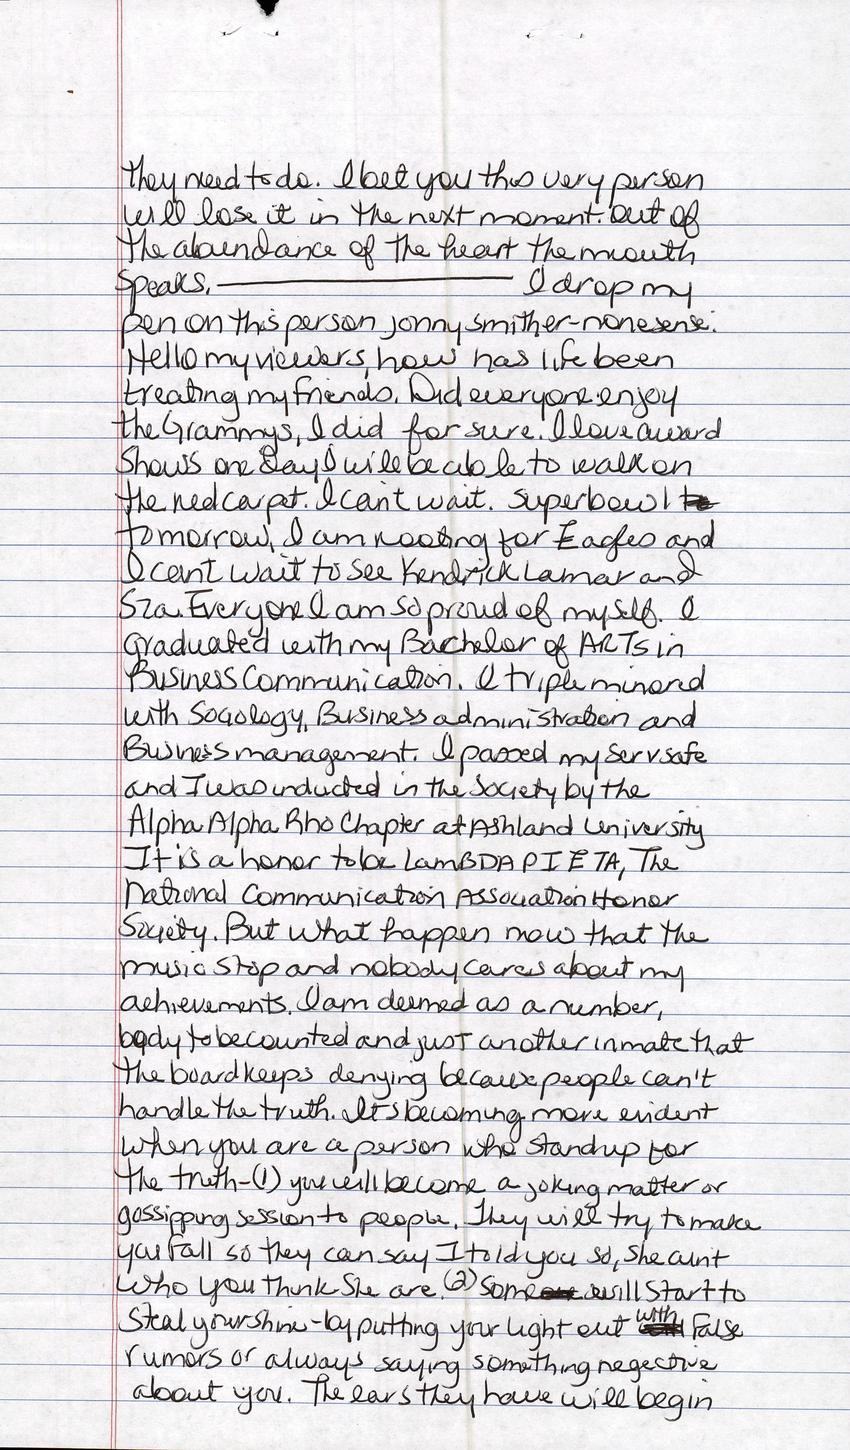 they need to do. I bet you this very person
will lose it in the next moment. Out of
the abundance of the heart the mouth
speaks. ——————— I drop my
pen on this person jonny smither-nonesense.
Hello my viewers, how has life been
treating my friends. Did everyone enjoy
the Grammys, I did for sure. I love award
shows one day I will be able to walk on
the red carpet. I can't wait. Superbowl
tomorrow, I am rooting for Eagles and
I cant wait to see Kendrick Lamar and
Sza. Everyone I am so proud of myself. I
graduated with my Bachelor of ARTs in
Business Communication. I triple minored
with Sociology, Business administration and
Business management. I passed my servsafe
and I was inducted in the Society by the
Alpha Alpha Rho Chapter at Ashland University
It is a honor to be LAMBDA PI ETA, The
National Communication Association Honor
Society. But what happen now that the
music stop and nobody cares about my
achievements. I am deemed as a number,
body to be counted and just another inmate that
the board keeps denying because people can't
handle the truth. Its becoming more evident
when you are a person who standup for
the truth-(1) you will become a joking matter or
gossipping session to people. They will try to make
you fall so they can say I told you so, she aint
who you think she are. (2) Some will start to
steal your shine-by putting your light out with False
rumors or always saying something negective
about you. The ears they have will begin